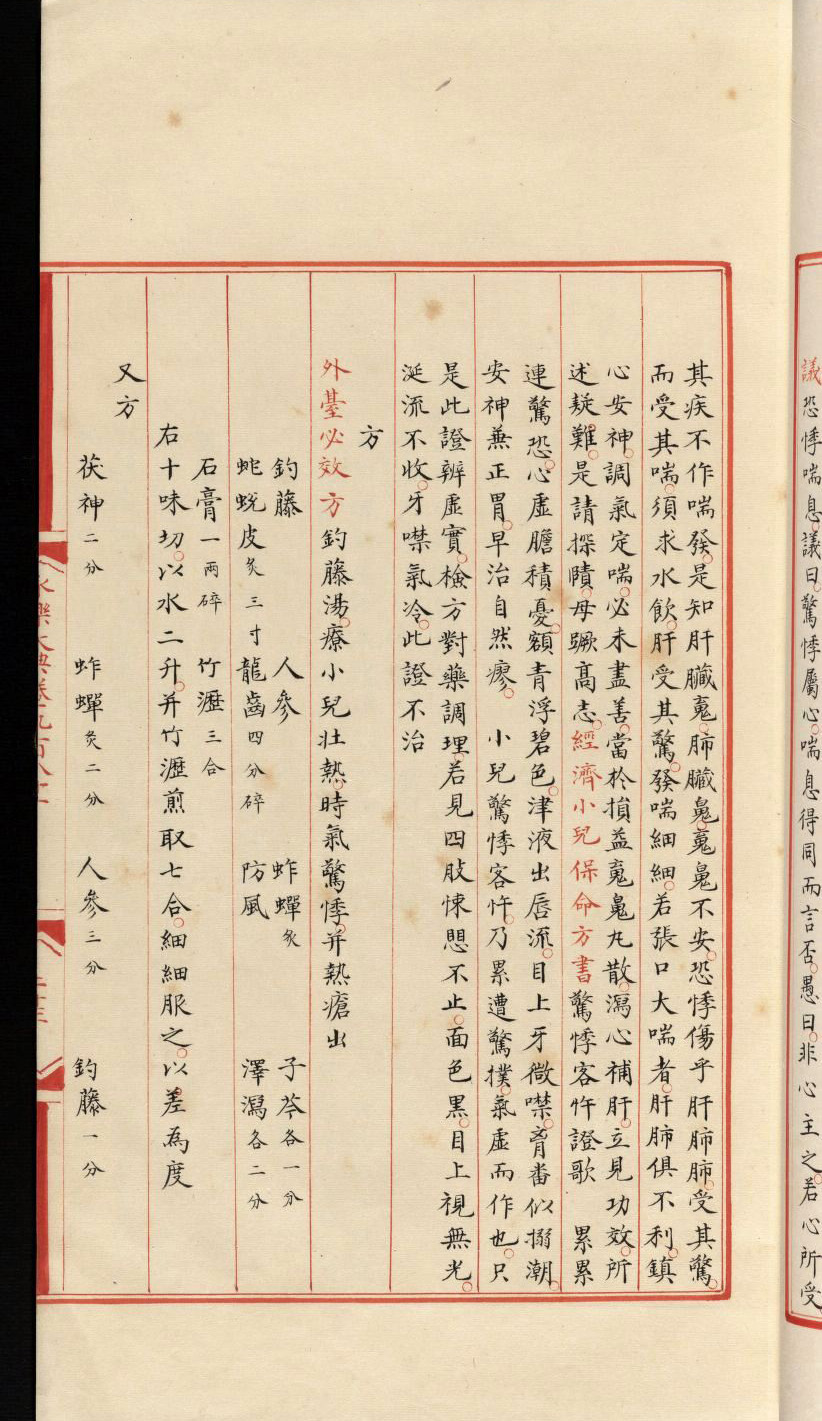 議恐悸喘息議曰驚悸屬心喘息得同而言否愚曰非心主之若心所受
其疾不作喘發是知肝臟䰟肺臟鬼䰟鬼不安恐悸傷乎肝肺肺受其驚
而受其喘須求水飲肝受其驚發喘細細若張口大喘者肝肺俱不利鎮
心安神調氣定喘必未盡善當於損益䰟鬼丸散瀉心補肝立見功效所
述疑難是請探賾毋蹶高志經濟小兒保命方書驚悸客忤證歌 累累
連驚恐心虛膽積憂額青浮碧色津液出唇流目上牙微噤㝱畨似搦潮
安神兼正胃早治自然瘳 小兒驚悸客忤乃累遭驚撲氣虛而作也只
是此證辨虛實檢方對藥調理若見四肢悚㦗不止面色黑目上視無光
涎流不收牙噤氣冷此證不治
方
外臺必效方釣藤湯療小兒壯熱時氣驚悸并熱瘡出
釣藤 人參 蚱蟬炙 子芩各一分
蛇蛻皮炙三寸 龍齒四分碎 防風 澤瀉各二分
石膏一兩碎 竹瀝三合
右十味切以水二升并竹瀝煎取七合細細服之以差為度
又方
茯神二分 蚱蟬炙二分 人參三分 釣藤一分